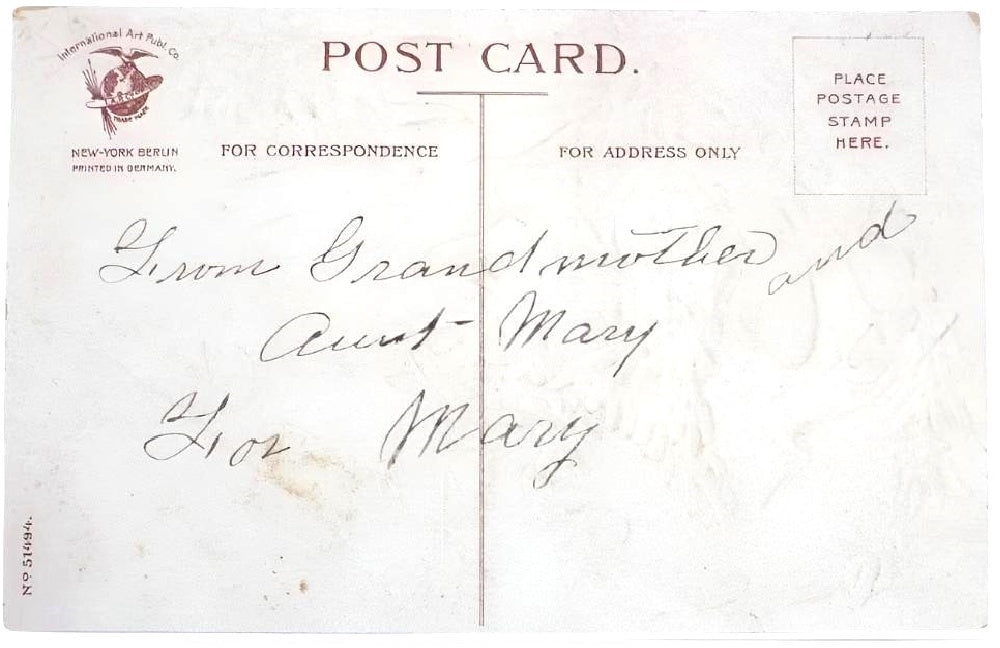 International Art Publ. Co.
TRADE MARK
NEW-YORK BERLIN
PRINTED IN GERMANY.
POST CARD.
PLACE
POSTAGE
STAMP
HERE.
FOR CORRESPONDENCE
FOR ADDRESS ONLY
From Grandmother and
Aunt Mary
For Mary
No 51494.